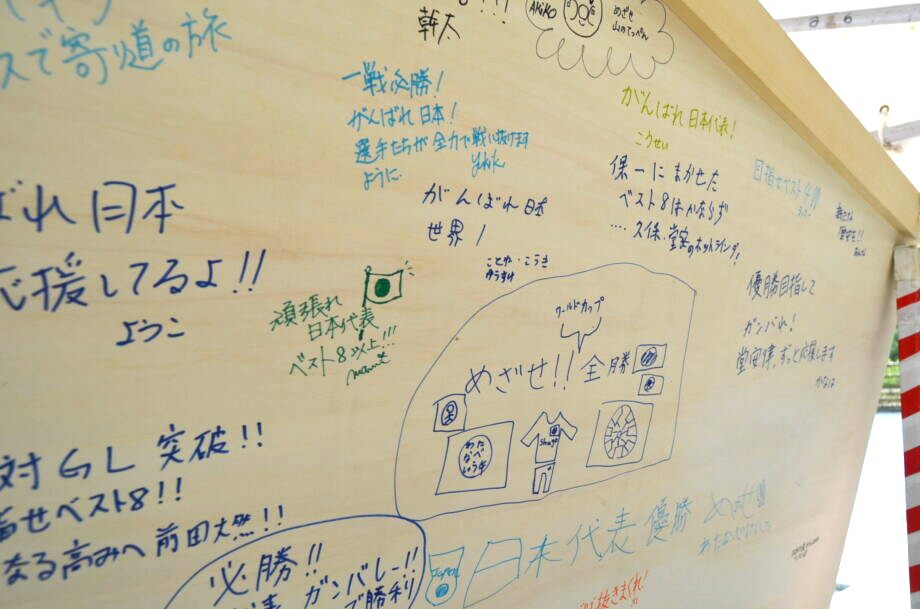 スで寄り道の旅
幹太
AKiKo
めざせ
山のてっぺん
一戦必勝!
がんばれ日本!
選手たちが全力で戦い抜けます
ように.
がんばれ日本
世界!
ことや・こうき
ゆうすけ
がんばれ日本代表!
こうせい
保一にまかせた
ベスト8はかならず
....久保、堂安のホットライン!
目指せベスト4!!
優勝目指して
ガンバれ!
堂安律、ずっと応援します
かなは
ばれ日本
応援してるよ!!
ようこ
頑張れ
日本代表
ベスト8以上!!!
ワールドカップ
めざせ!!全勝
わた
なべ
対GL突破!!
指せベスト8!!
なる高みへ前田大然!!
必勝!!
ガンバレー!!
で勝利
Japan
日本代表優勝
抜きまくれ!